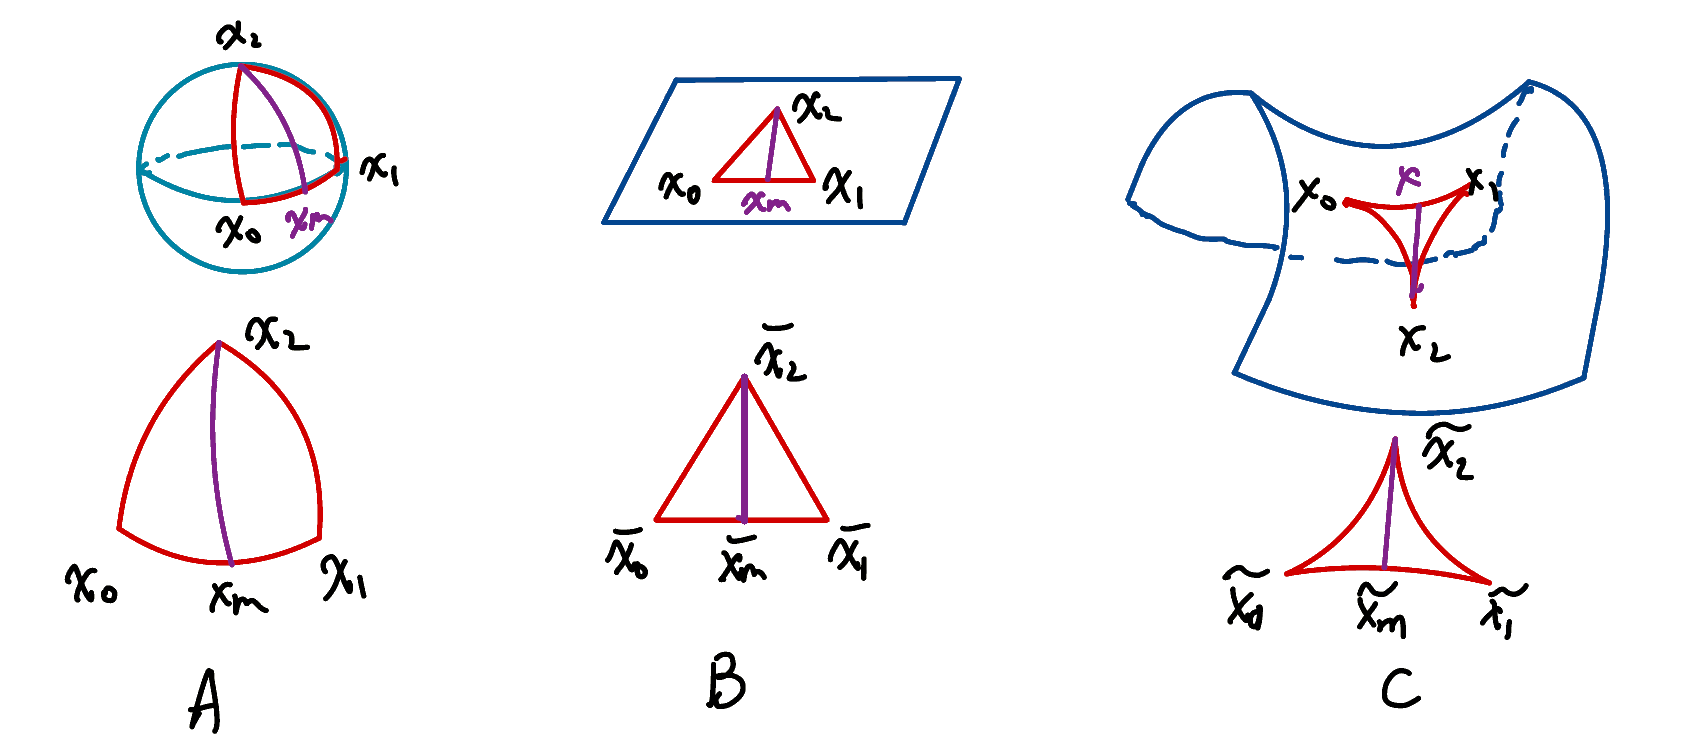 x₂
x₁
x₀
xₘ
x₂
x₀
xₘ
x₁
A
x₂
x₀
xₘ
x₁
x̄₂
x̄₀
x̄ₘ
x̄₁
B
x₀
x
x₁
x₂
x̃₂
x̃₀
x̃ₘ
x̃₁
C